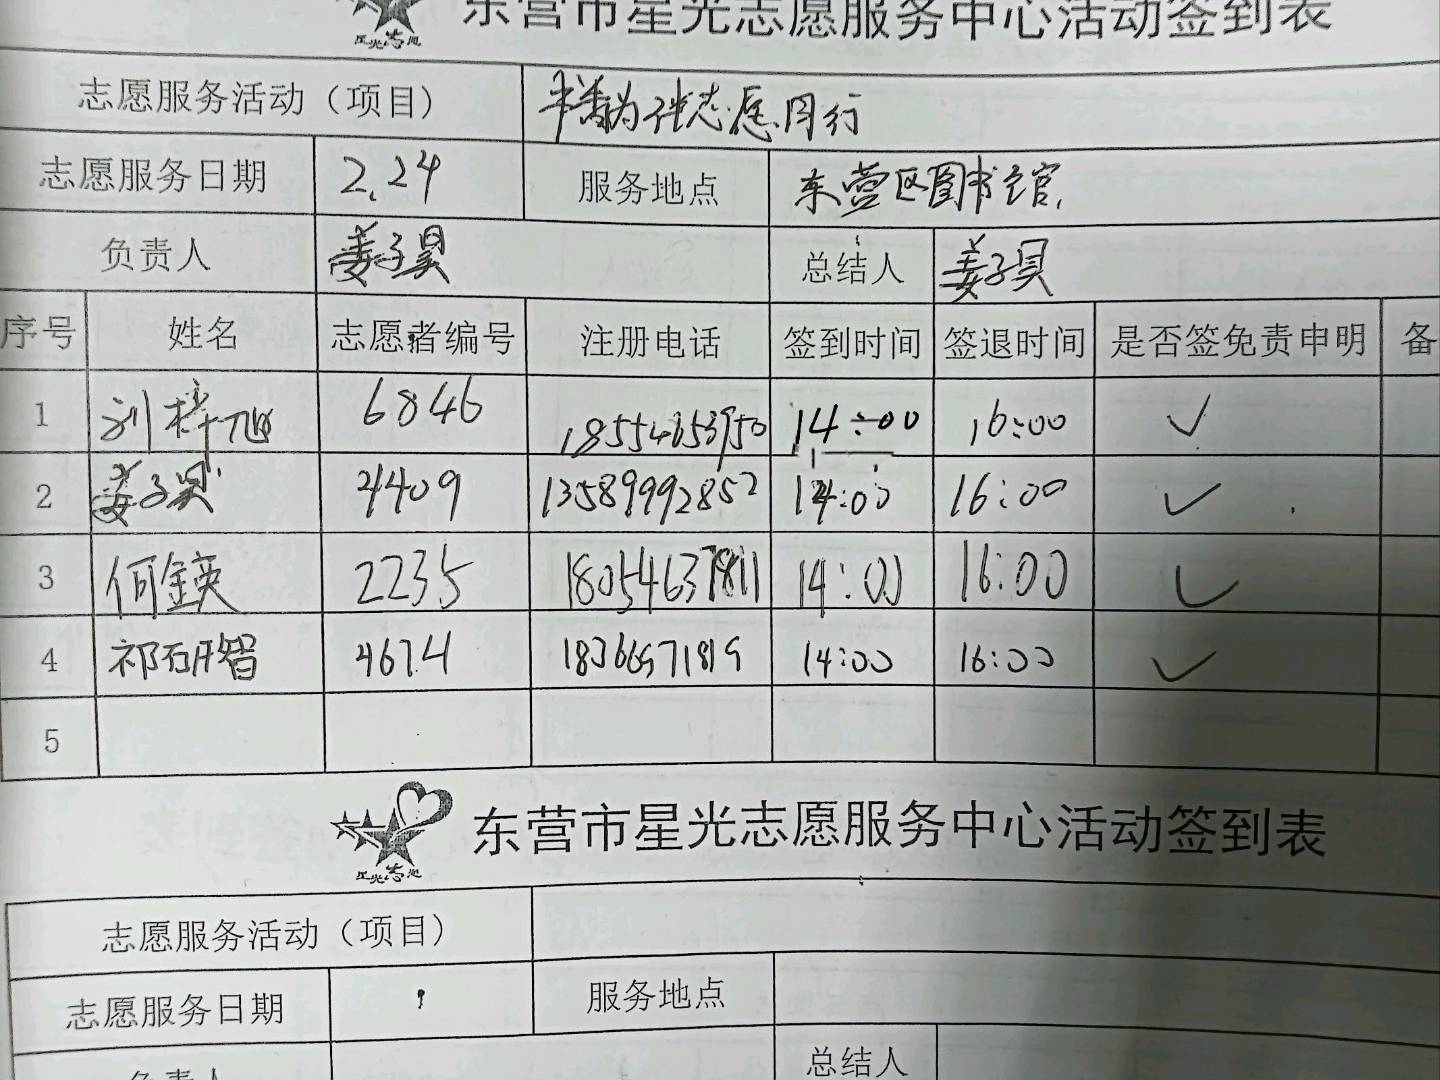 东营市星光志愿服务中心活动签到表
星光志愿
志愿服务活动（项目） 书香为伴志愿同行
志愿服务日期 2.24 服务地点 东营区图书馆
负责人 姜子昊 总结人 姜子昊
序号 姓名 志愿者编号 注册电话 签到时间 签退时间 是否签免责申明 备
1 刘梓旭 6846 18554653950 14:00 16:00 ✓
2 姜子昊 4409 13589992852 14:00 16:00 ✓
3 何金英 2235 18054637811 14:00 16:00 ✓
4 祁研智 4674 14:00 16:00 ✓
5
东营市星光志愿服务中心活动签到表
星光志愿
志愿服务活动（项目）
志愿服务日期 服务地点
负责人 总结人